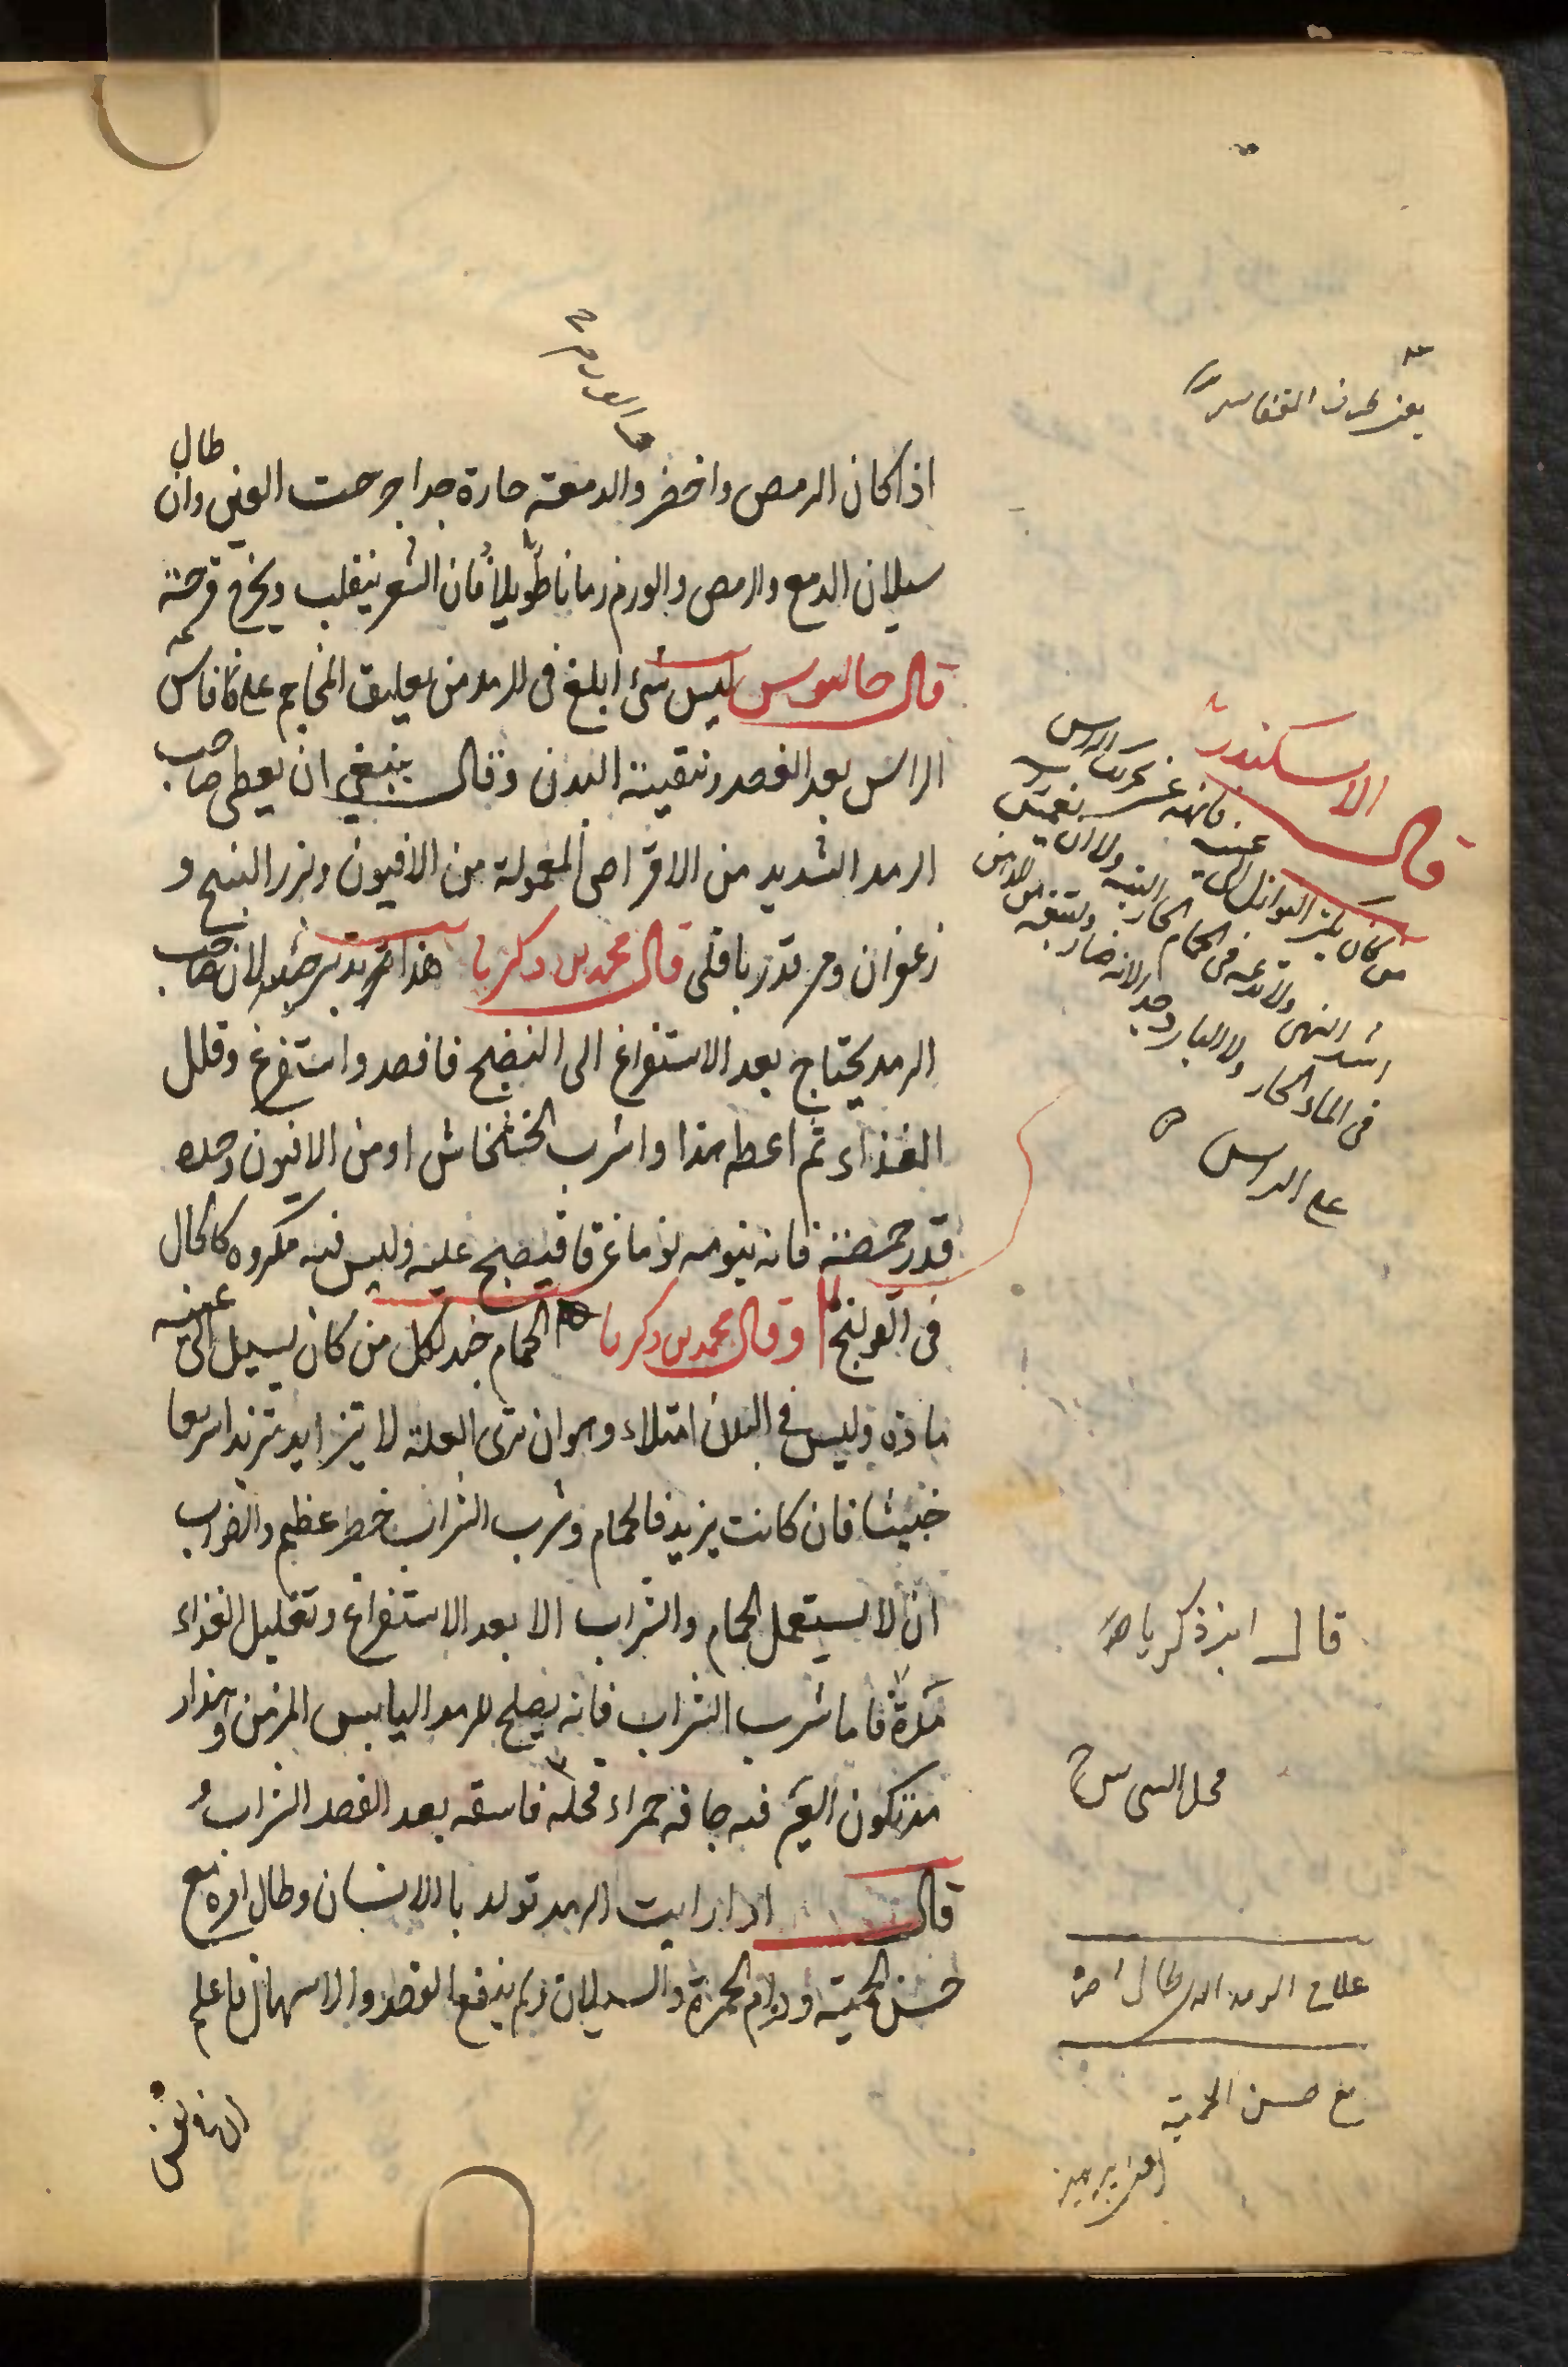 اذا كان الرمص واخضر والدمعة حارة جدا جرحت العين وان طال
سيلان الدمع والرمص والورم زمانا طويلا فان الشعر ينقلب ويخرج قرحة
قال جالينوس ليس شئ ابلغ فى الرمد من تعليق المحاجم على فاس
الراس بعد الفصد وتنقية البدن وقال ينبغي ان يعطى صاحب
الرمد الشديد من الاقراص المعمولة من الافيون وبزر البنج و
زعفران ومر قدر باقلى قال محمد بن زكريا هذا تدبير جيد لان صاحب
الرمد يحتاج بعد الاستفراغ الى النضج فافصد واستفرغ وقلل
الغذاء ثم اعطه هذا واشرب الخشخاش او من الافيون وحده
قدر حمصة فانه ينومه نوما غرقا فينضج عليه وليس فيه مكروه كالحال
فى القولنج وقال محمد بن زكريا الحمام جيد لكل من كان يسيل الى عينه
مادة وليس في البدن امتلاء وهو ان ترى العلة لا تتزايد تزيدا سريعا
خبيثا فان كانت يزيد فالحمام وشرب الشراب خطر عظيم والصواب
ان لا يستعمل الحمام والشراب الا بعد الاستفراغ وتقليل الغذاء
مدة فاما شرب الشراب فانه يصلح للرمد اليابس المزمن وهذا
تكون العين فيه جافة حمراء قحلة فاسقه بعد الفصد الشراب
قال اذا رايت الرمد تولد بالانسان وطال امره مع
حسن الحمية ودوام الحمرة والسيلان ولم ينفع الفصد والاسهال فاعلم
قال الاسكندر
من كان
عينيه فانهه عن تحريك الراس
فى الماء الحار ولا البارد
على الراس
قال ابن زكريا
علاج الرمد الذى طال امره
مع حسن الحمية